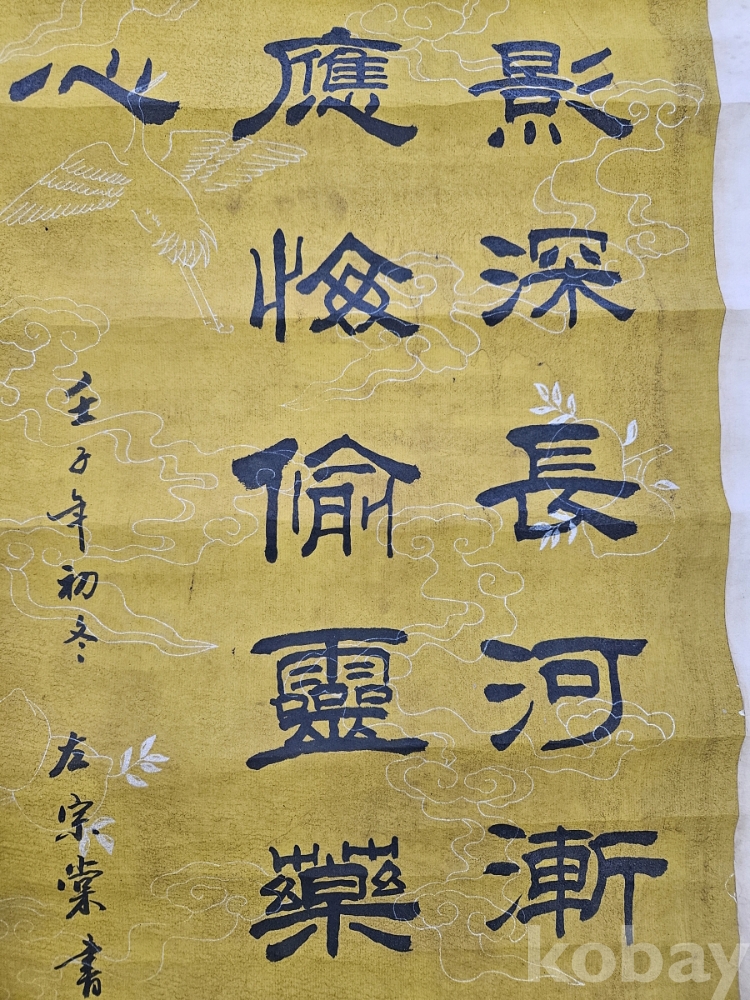 影深長河漸
應悔偷靈藥
心
壬子年初冬
左宗棠書
kobay